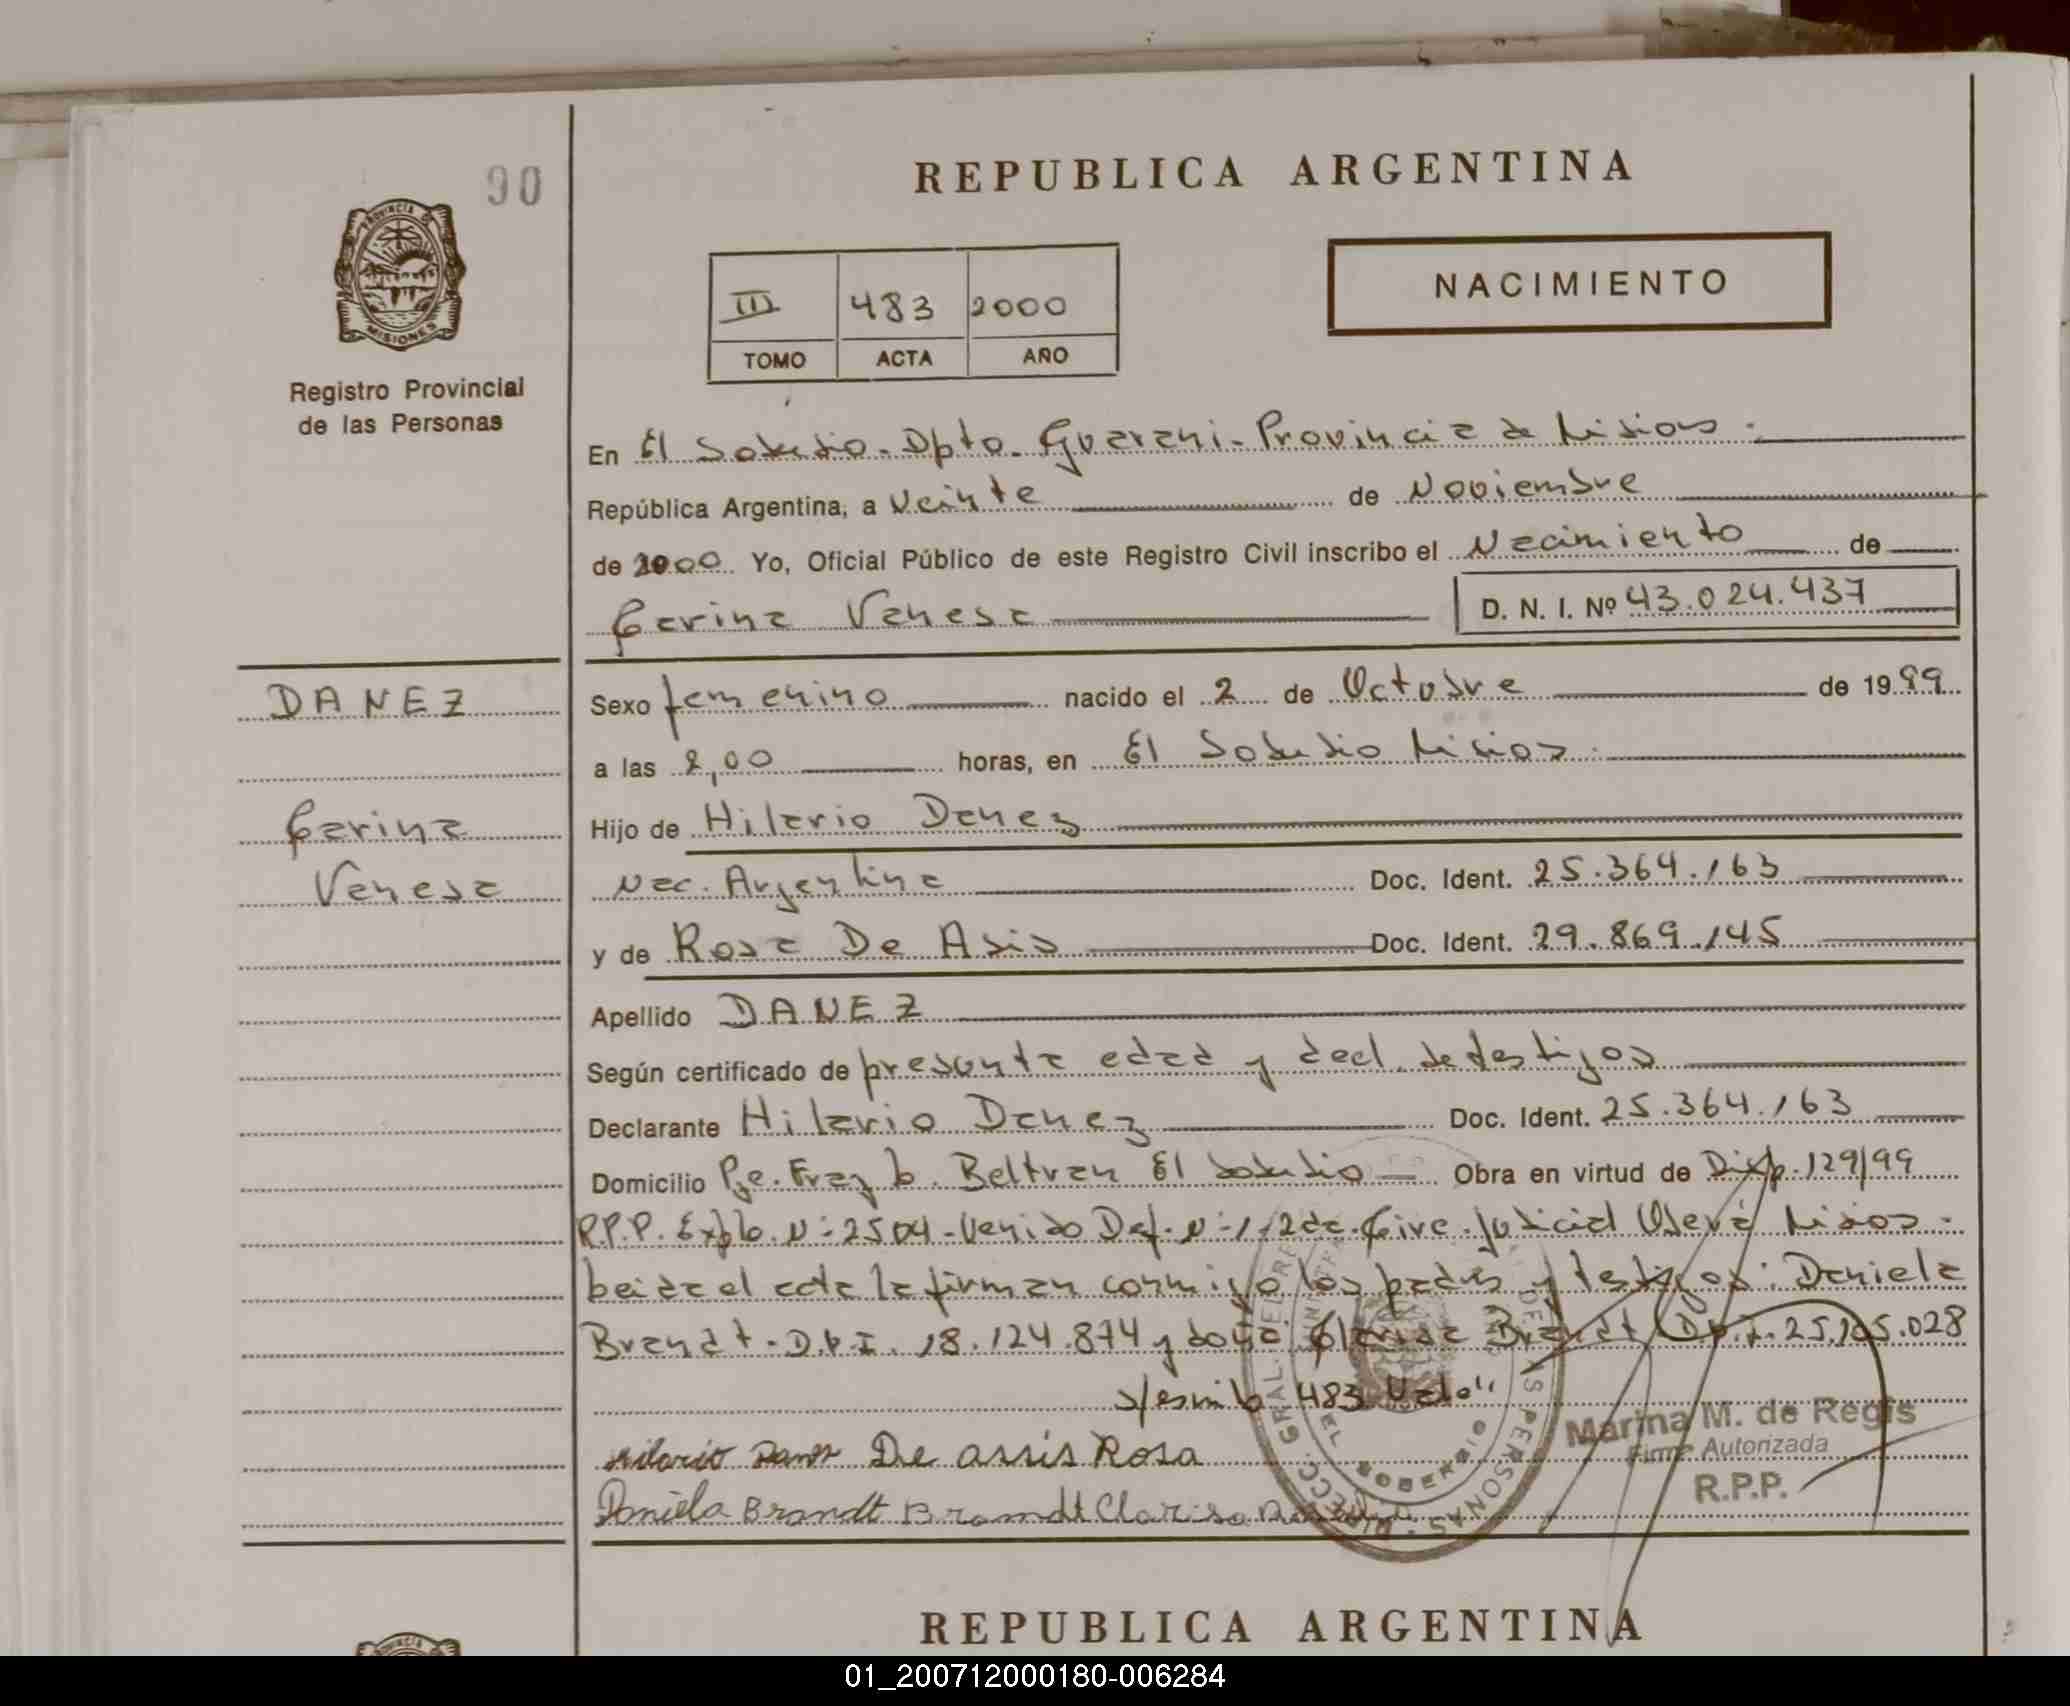 90
REPUBLICA ARGENTINA
NACIMIENTO
PROVINCIA DE
MISIONES
Registro Provincial
de las Personas
III 483 2000
TOMO ACTA AÑO
En El Soberbio - Dpto. Guarani - Provincia de Misiones.
República Argentina, a Veinte de Noviembre
de 2000 Yo, Oficial Público de este Registro Civil inscribo el Nacimiento de
Carina Vanesa D. N. I. Nº 43.024.437
DANEZ
Carina
Vanesa
Sexo femenino nacido el 2 de Octubre de 1999
a las 2,00 horas, en El Soberbio Misiones.
Hijo de Hilario Danez
Nac. Argentina Doc. Ident. 25.364.163
y de Rosa De Asis Doc. Ident. 29.869.145
Apellido DANEZ
Según certificado de presunta edad y decl. de testigos
Declarante Hilario Danez Doc. Ident. 25.364.163
Domicilio Pje. Fray L. Beltran El Soberbio Obra en virtud de Disp. 129/99
R.P.P. Expte. Nº 2504 - Venido Def. Nº 1-2da. Circ. Judicial Oberá Misiones.
Leida el acta la firman conmigo los padres y testigos: Daniela
Brandt - D.N.I. 18.124.874 y doña Clarisa Brandt D.N.I. 25.105.028
s/esmito 483 Vale"
Hilario Danez De assis Rosa
Daniela Brandt Bramdt Clarisa
DIRECC. GRAL. DEL REG. DE LAS PERSONAS
EL SOBERBIO
Marina M. de Regis
Firma Autorizada
R.P.P.
REPUBLICA ARGENTINA
01_200712000180-006284